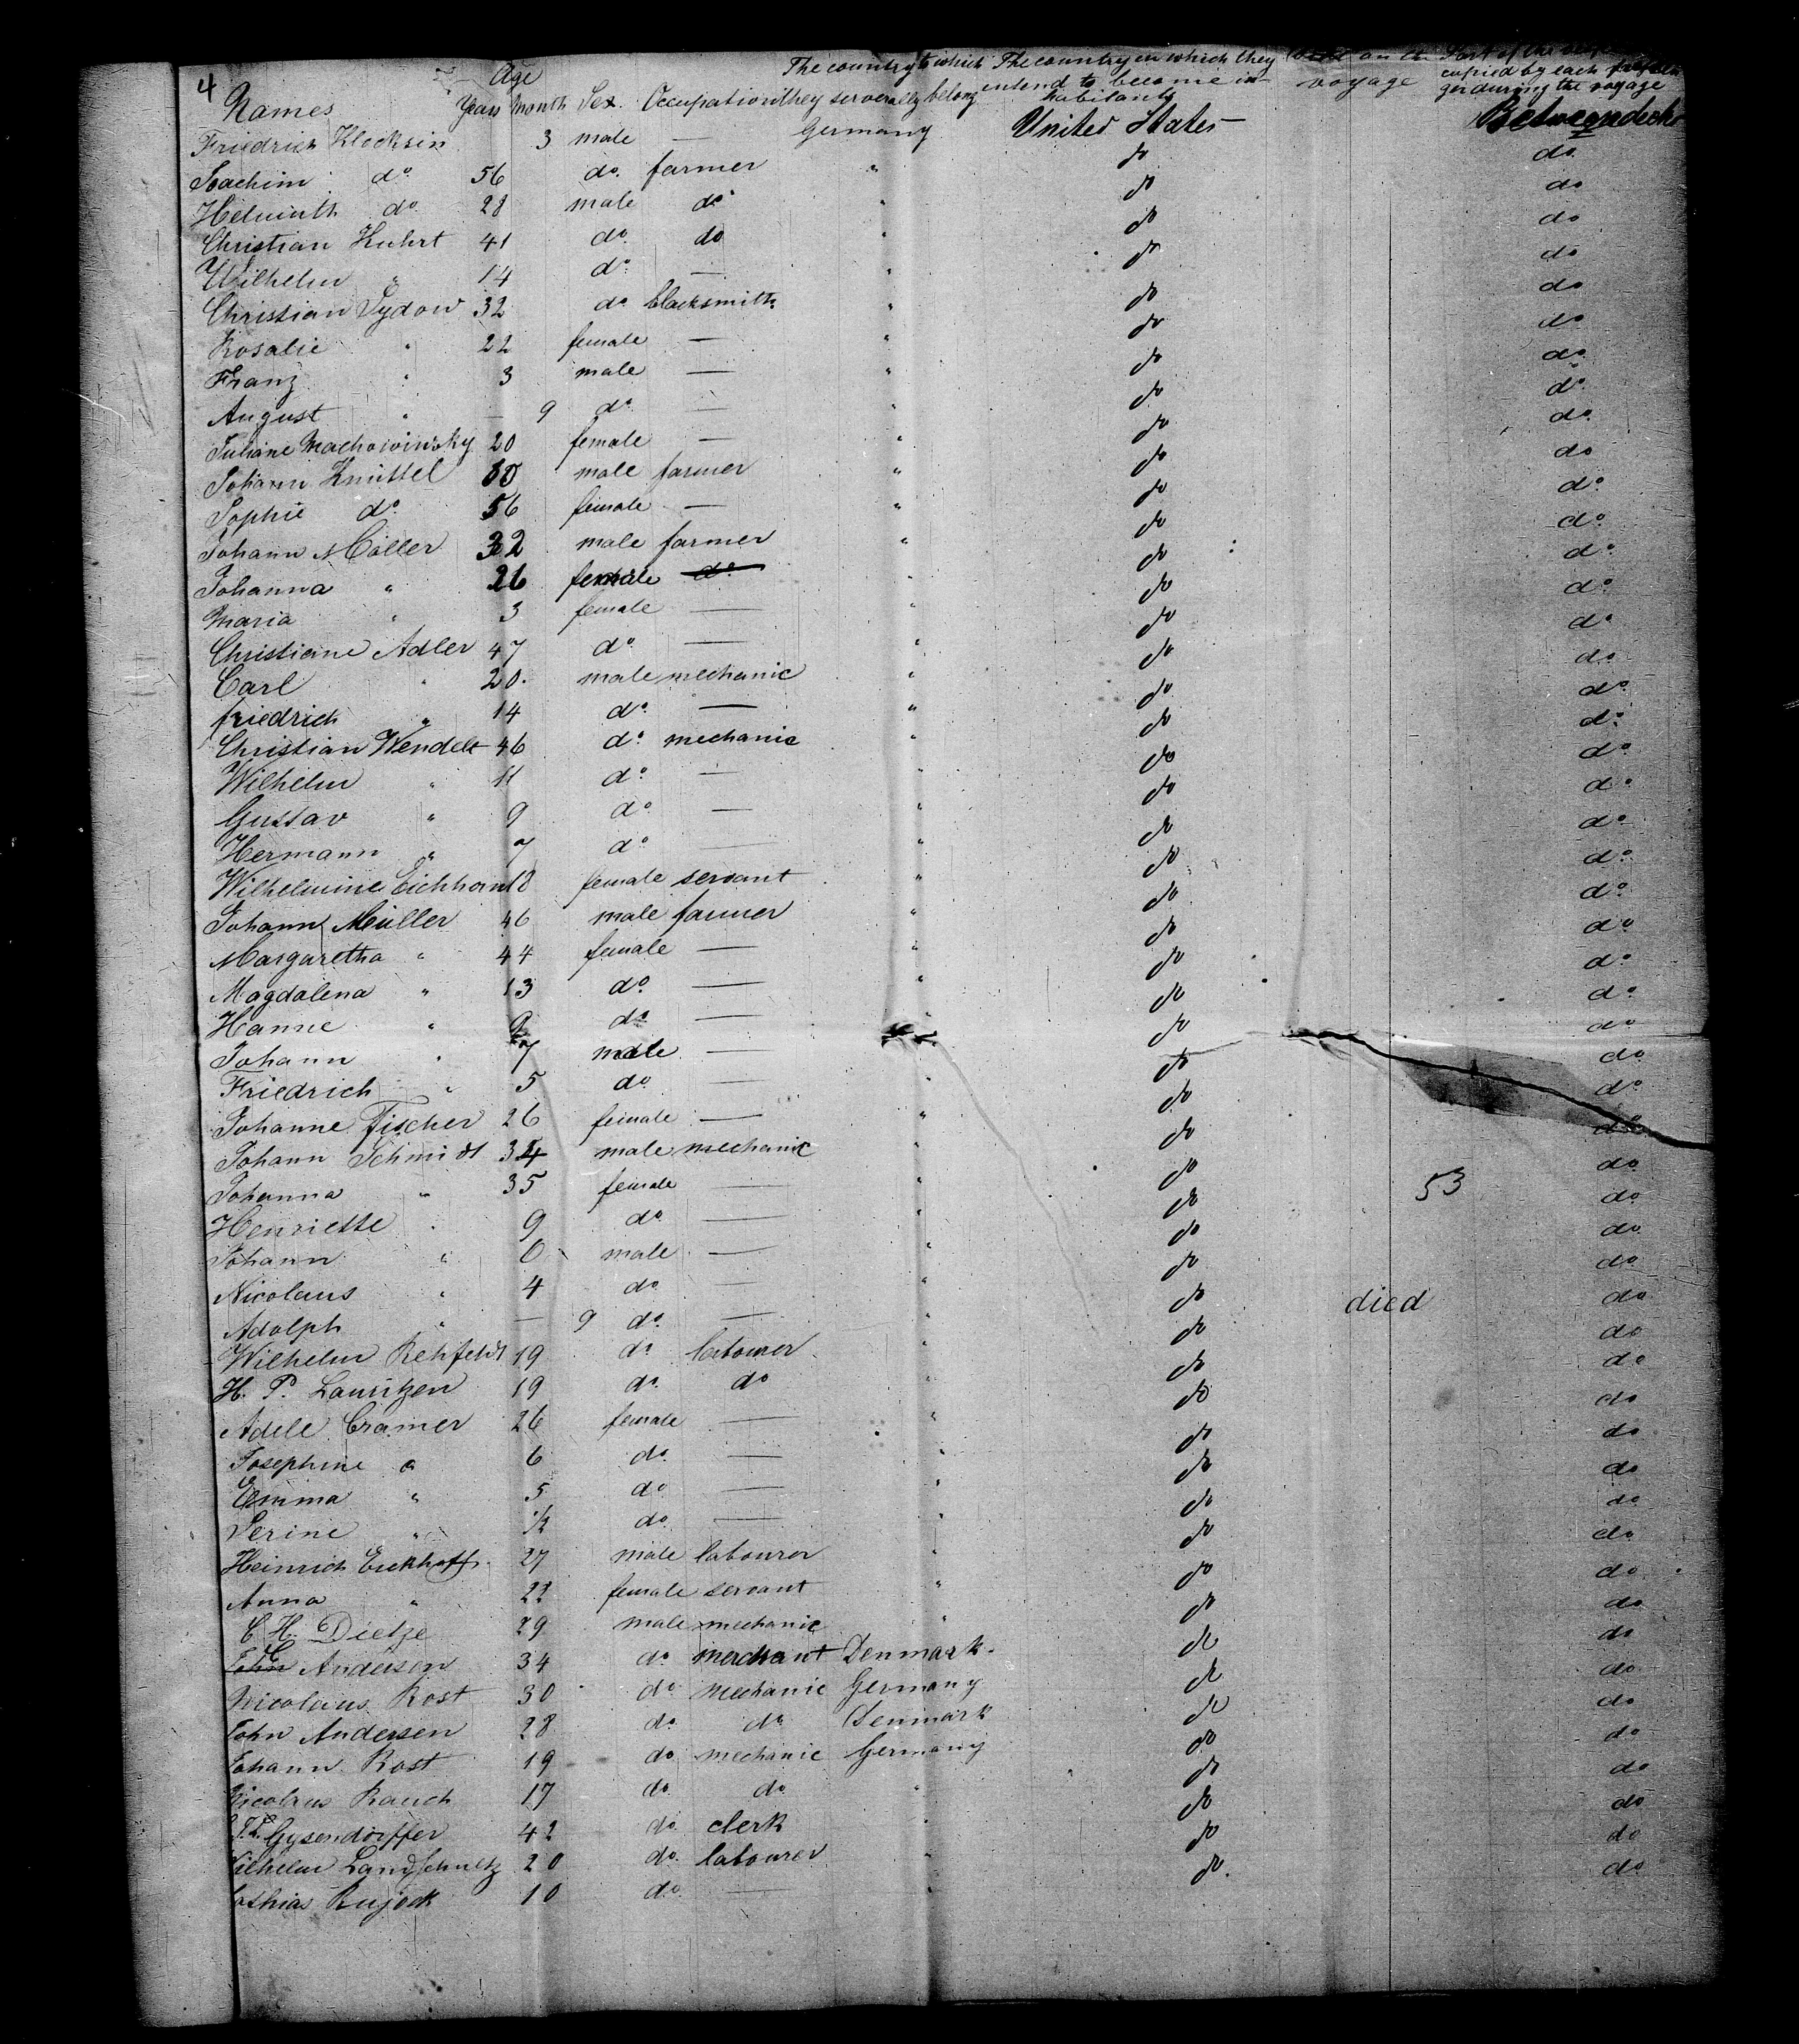 4
Names Age Years Month Sex. Occupation The country to which they serverally belong The country in which they intend to become inhabitants on the voyage Part of the occupied by each passenger during the voyage
Friedrich Klocksin 3 male — Germany United States Betweendeck
Joachim do 56 do. farmer " do do.
Helmuth do 28 male do " do do
Christian Kuhrt 41 do. do " do do
Wilhelm " 14 do. — " do do
Christian Sydow 32 do blacksmith " do do
Rosalie " 22 female — " do do
Franz " 3 male — " do do
August " — 9 do — " do do
Juliane Machowinsky 20 female — " do do
Johann Knüttel male farmer " do do
Sophie do 56 female — " do do
Johann Möller 32 male farmer " do do
Johanna " 26 female do " do do
Maria " 3 female — " do do
Christiane Adler 47 do — " do do
Carl " 20. male mechanic " do do
Friedrich " 14 do. — " do do
Christian Wendelt 46 do mechanic " do do
Wilhelm " 11 do — " do do
Gustav " 9 do — " do do
Hermann " 7 do — " do do
Wilhelmine Eichhorn 18 female servant " do do
Johann Müller 46 male farmer " do do
Margaretha " 44 female — " do do
Magdalena " 13 do — " do do
Hanne " 9 do — " do do
Johann " 7 male — do do
Friedrich " 5 do — " do do
Johanne Fischer 26 female — " do do
Johann Schmidt 34 male mechanic " do do
Johanna " 35 female — " do 53 do
Henriette " 9 do — " do do
Johann " 6 male — " do do
Nicolaus " 4 do — " do do
Adolph " — 9 do. — " do died do
Wilhelm Rehfeldt 19 do labourer " do do
H. P. Lauritzen 19 do. do " do do
Adele Cramer 26 female — " do do
Josephine " 6 do. — " do do
Emma " 5 do — " do do
Serine " ½ do — " do do
Heinrich Eickhoff 27 male labourer " do do
Anna " 22 female servant " do do
C. H. Dietze 29 male mechanic " do do
Andersen 34 do merchant Denmark. do do
Nicolaus Rost 30 do mechanic Germany do do
John Andersen 28 do do Denmark do do
Johann Rost 19 do mechanic Germany do do
Nicolaus Rauch 17 do. do " do do
Gysendörffer 42 do clerk " do do
Wilhelm Landschultz 20 do. labourer " do do
athias Rujock 10 do. — " do. do